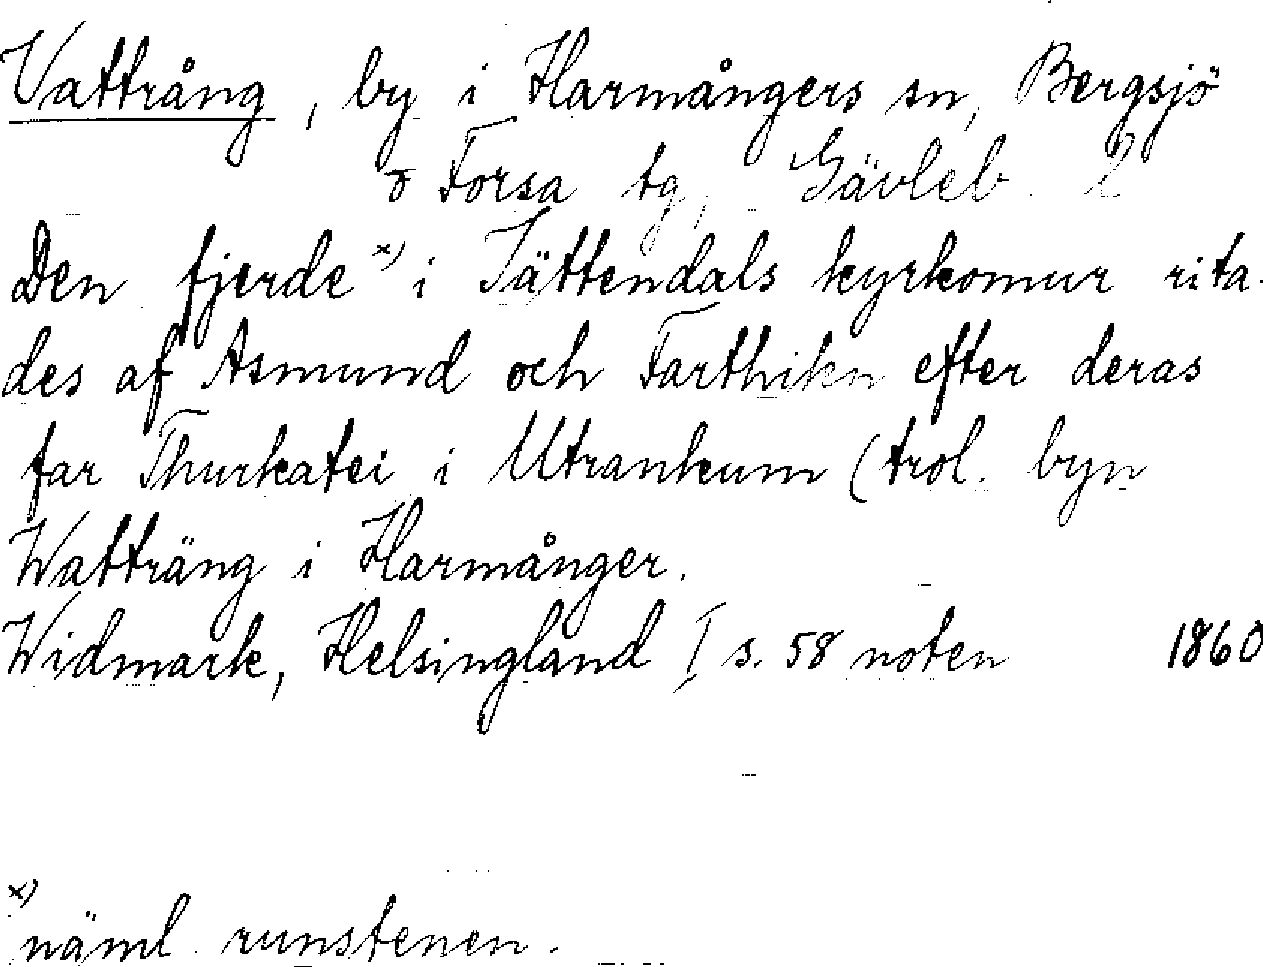 Vattrång, by i Harmångers sn, Bergsjö
o Forsa tg, Gävleb. l
Den fjerde x) i Jättendals kyrkomur rita-
des af Asmund och Farthikn efter deras
far Thurkatei i Utrankum (trol. byn
Watträng i Harmånger.
Widmark, Helsingland I s. 58 noten 1860
x) näml. runstenen.